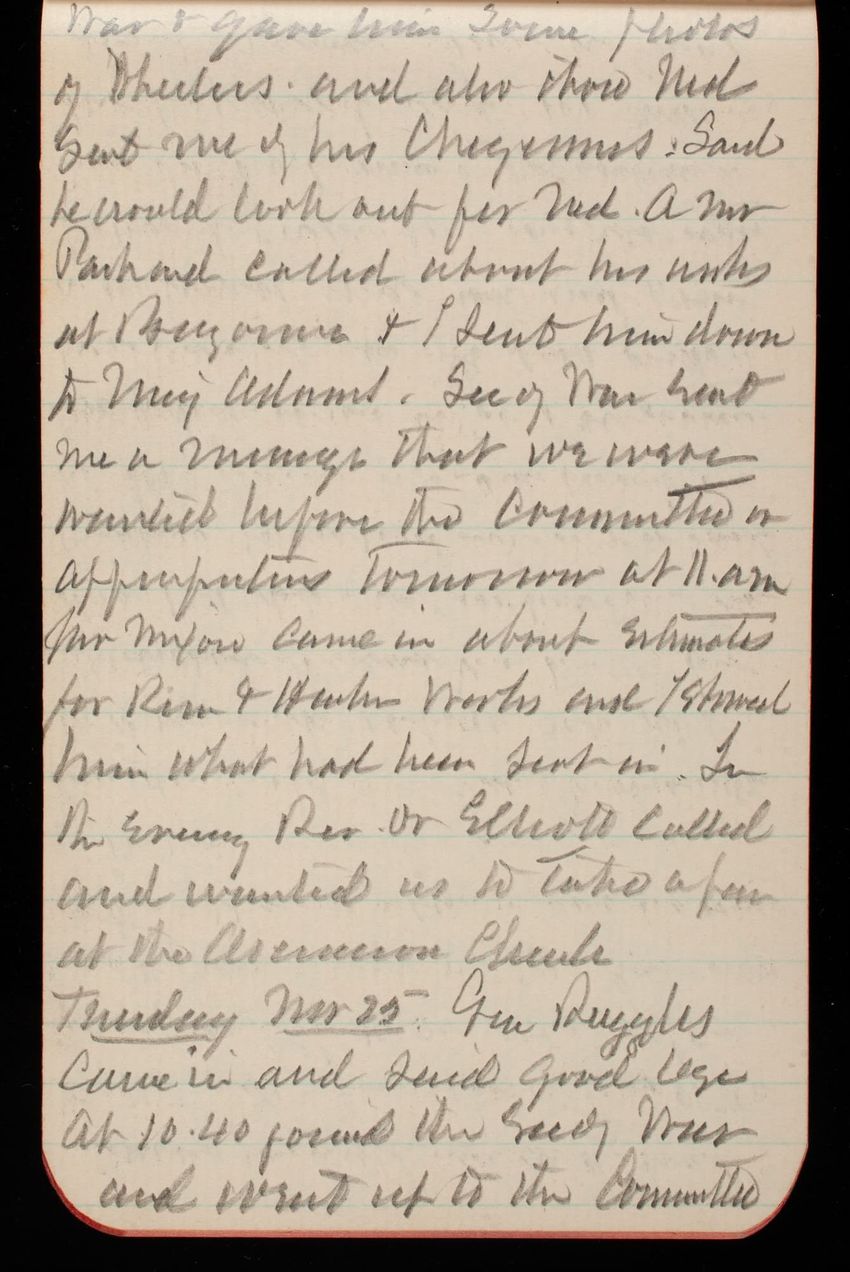 War & gave him some photos
of Wheelers. and also those Ned
Sent me of his Cheyennes. Said
he would look out for Ned. A Mr
Packard called about his
at & I sent him down
to Maj Adams. Sec of War sent
me a message that we were
wanted before the Committee on
appropriations Tomorrow at 11. am
Mr came in about Estimates
for River & Harbor Works and I showed
him what had been sent in. In
the Evening Rev. Dr Elliott called
and wanted us to take a pew
at the Ascension Church
Thursday Nov 25. Gen Ruggles
Came in and said good bye
At 10.40 joined the Sec of War
and went up to the Committee